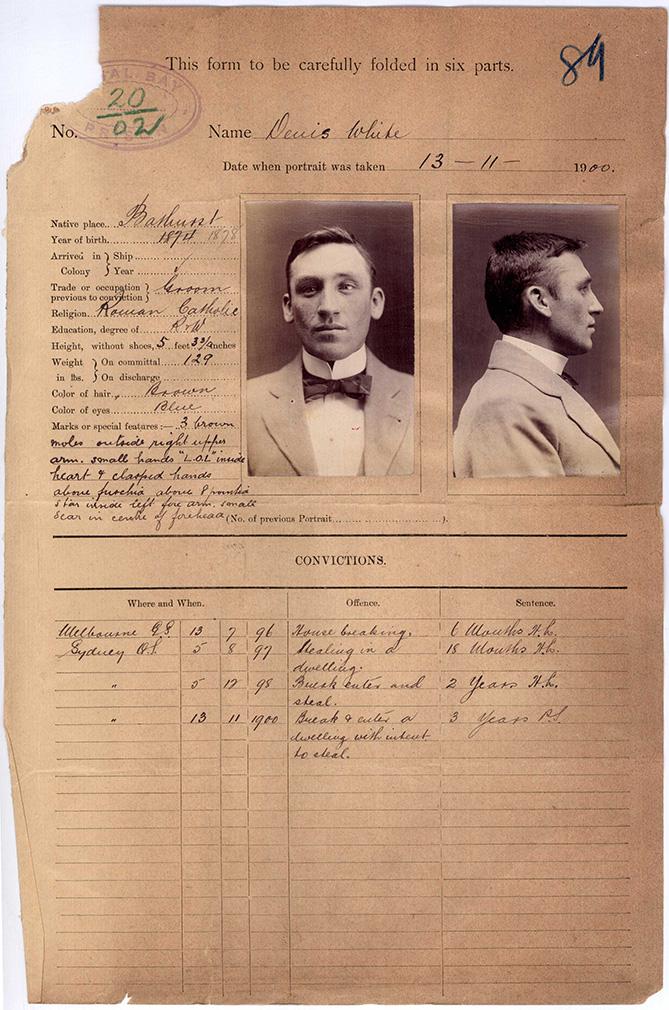 This form to be carefully folded in six parts.
84
AL BAY
20
02
PRISON
No.
Name Denis White
Date when portrait was taken 13 - 11 - 1900.
Native place Bathurst
Year of birth 1874 1878
Arrived in Colony } Ship
Year
Trade or occupation previous to conviction } Groom
Religion Roman Catholic
Education, degree of R & W
Height, without shoes, 5 feet 3 3/4 inches
Weight in lbs. } On committal 129
On discharge
Color of hair Brown
Color of eyes Blue
Marks or special features:— 3 brown
moles outside right upper
arm. small hands "L.O.L" inside
heart & clasped hands
above fuschia above 8 pointed
star inside left fore arm. small
scar in centre of forehead
(No. of previous Portrait ).
CONVICTIONS.
Where and When. Offence. Sentence.
Melbourne G.S. 13 7 96 House breaking. 6 Months H.L.
Sydney Q.S. 5 8 97 Stealing in a 18 Months H.L.
dwelling.
" 5 12 98 Break enter and 2 Years H.L.
steal.
" 13 11 1900 Break & enter a 3 Years P.S.
dwelling with intent
to steal.